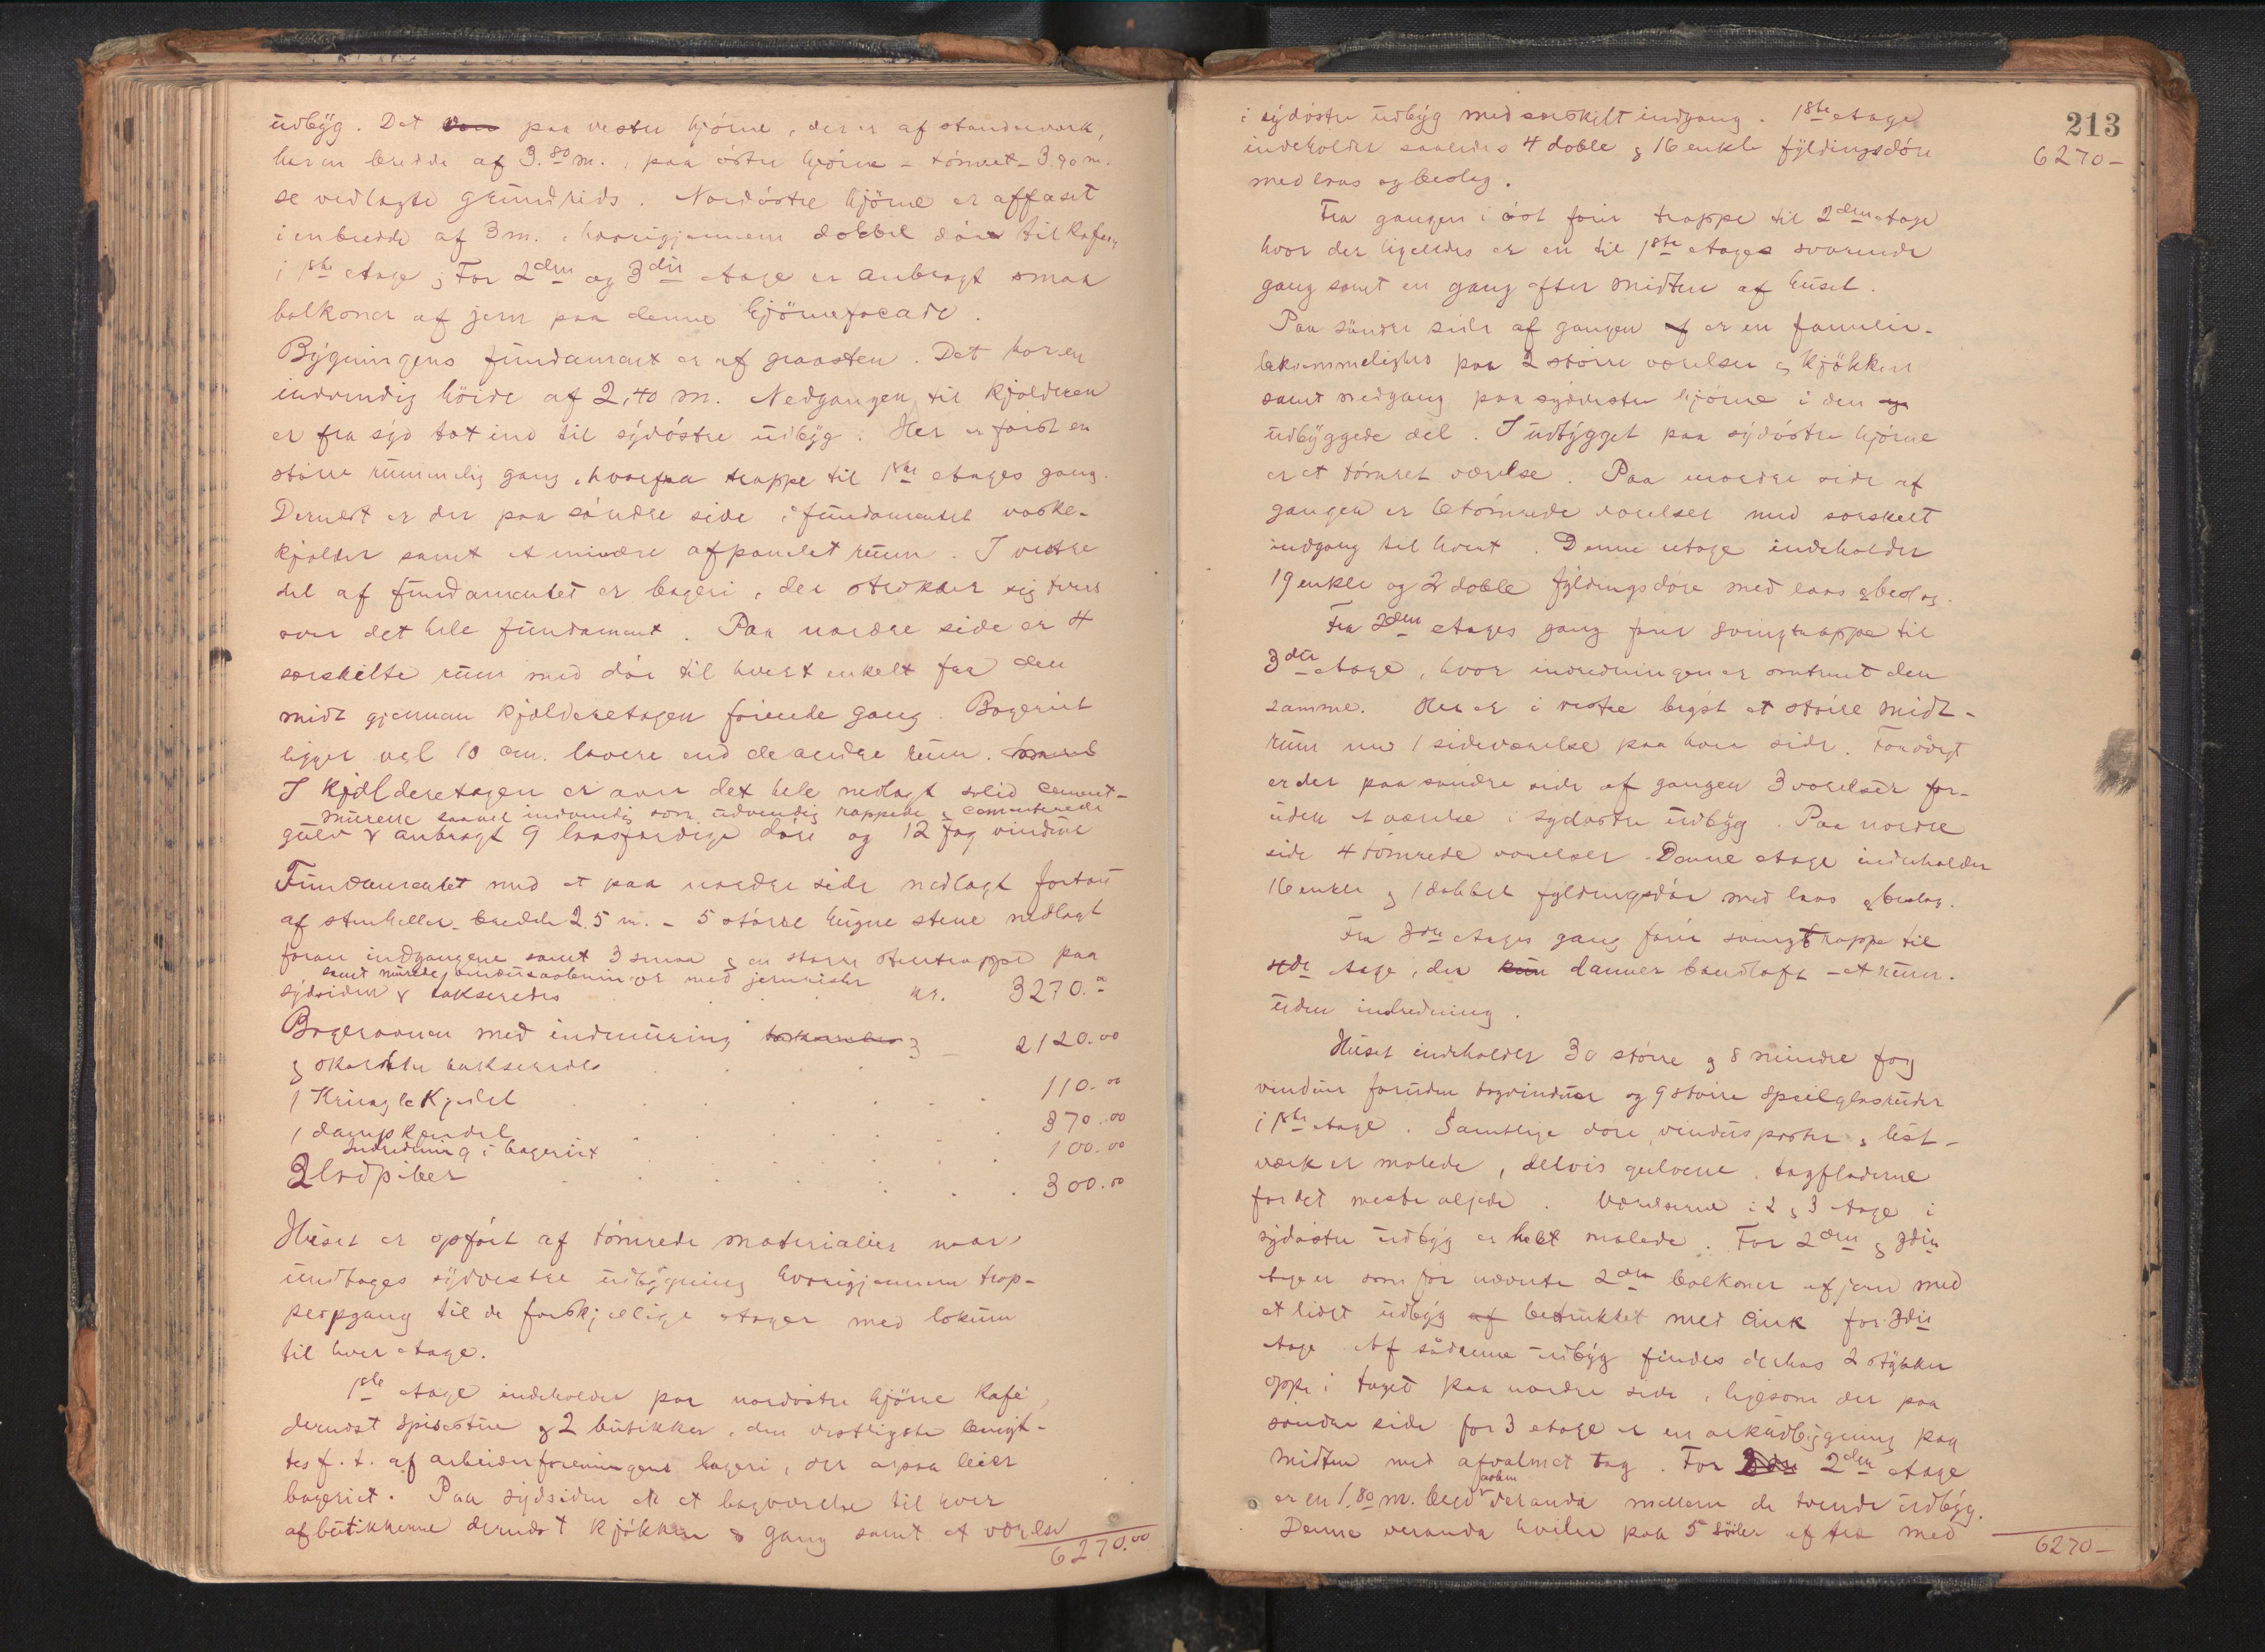 udbÿg. Det paa vestre hjörne, der er af standerverk,
har en bredde af 3.80 m., paa östre hjörne – tömret – 3.90 m.
se vedlagte grundrids. Nordöstre hjörne er affaset
i en bredde af 3 m., hvorigjennem dobbel dör til Kafeen
i 1ste etage; For 2den og 3die etage er anbragt smaa
balkoner af jern paa denne hjörnefacade.
Bÿgningens fundament er af graasten. Det har en
indvendig höide af 2,40 m. Nedgangen til kjelderen
er fra sÿd tat ind til sÿdöstre udbÿg. Her er först en
större rummelig gang, hvorfra trappe til 1ste etages gang.
Dernæst er der paa söndre side i fundamentet vaske-
kjelder samt et mindre afpanelet rum. I vestre
del af fundamentet er bageri, der strekker sig tvers
over det hele fundament. Paa nordre side er 4
særskilte rum med dör til hvert enkelt fra den
midt gjennem kjelderetagen förende gang. Bageriet
ligger vel 10 cm. lavere end de andre rum.
I kjelderetagen er over det hele nedlagt solid cement-
murene saavel indvendig som udvendig rappede & cementerede
gulv & anbragt 9 laasfærdige döre og 12 fag vinduer
Fundamentet med et paa nordre side nedlagt fortau
af stenheller – bredde 2.5 m. – 5 större hugne stene nedlagt
foran indgangene samt 3 smaa & en större stentrappe paa
samt murede vinduesaabninger med jernrister
sÿdsiden & takseredes kr. 3270.00
Bagerovnen med indmuring 3 – 2120.00
& skorsten takseredes
1 Kringlekjedel 110.00
1 dampkjedel 370.00
Indredning i bageriet 100.00
3 Ildpiber 300.00
Huset er opfört af tömrede materialier naar
undtages sÿdvestre udbÿgning hvorigjennem trap-
peopgang til de forskjellige etager med lokum
til hver etage.
1ste etage indeholder paa nordöstre hjörne Kafé,
dernæst spisestue & 2 butikker, den vestligste benyt-
tes f. t. af arbeiderforeningens bageri, der ogsaa leier
bageriet. Paa sÿdsiden er et bagværelse til hver
af butikkerne dernæst kjökken & gang samt et værelse
6270.00
213
i sÿdöstre udbÿg med særskilt indgang. 1ste etage
6270 –
indeholder saaledes 4 doble & 16 enkle fÿldingsdöre
med laas og beslag.
Fra gangen i öst förer trappe til 2den etage
hvor der ligeledes er en til 1ste etages svarende
gang samt en gang efter midten af huset.
Paa söndre side af gangen er en familie-
bekvemmelighed paa 2 större værelser & kjökken
samt nedgang paa sÿdvestre hjörne i den
udbÿggede del. I udbÿgget paa sÿdöstre hjörne
er et tömret værelse. Paa nordre side af
gangen er 6 tömrede værelser med særskilt
indgang til hvert. Denne etage indeholder
19 enkle og 2 doble fÿldingsdöre med laas & beslag.
Fra 2den etages gang förer svingtrappe til
3die etage, hvor indredningen er omtrent den
samme. Her er i vestre bÿst et större midt-
rum med 1 sideværelse paa hver side. Forövrigt
er der paa söndre side af gangen 3 værelser for-
uden et værelse i sÿdöstre udbÿg. Paa nordre
side 4 tömrede værelser. Denne etage indeholder
16 enkle & 1 dobbel fÿldingsdör med laas & beslag.
Fra 3die etages gang förer svingtrappe til
4de etage, der danner bandloft – et rum.
uden indredning.
Huset indeholder 30 större & 8 mindre fag
vinduer foruden tagvinduer og 9 större speilglasruder
i 1ste etage. Samtlige döre, vinduesposter & list-
værk er malede, delvis gulvene. tagfladerne
for det meste oljede. Værelserne i 2 & 3 etage i
sÿdöstre udbÿg er helt malede. For 2den & 3die
etage er som för nævnte 2den balkoner af jern med
et lidet udbÿg betrukket med zink for 3die
etage Af sådanne udbÿg findes derhos 2 stÿkker
oppe i taget paa nordre side, ligesom der paa
söndre side for 3 etage er en arkudbÿgning paa
midten med afvalmet tag. For 2den etage
aaben
er en 1.80 m. bred veranda mellem de tvende udbÿg.
Denne veranda hviler paa 5 söiler af træ med
6270 –